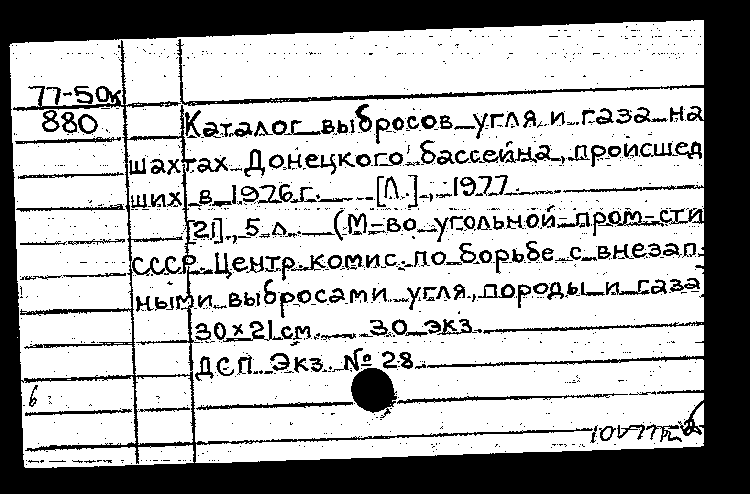 77-50к
880 Каталог выбросов угля и газа на
шахтах Донецкого бассейна, происшед
ших в 1976 г. [Л.], 1977.
[21], 5 л. (М-во угольной пром-сти
СССР. Центр. комис. по борьбе с внезап-
ными выбросами угля, породы и газа)
30×21 см. 30 экз.
ДСП. Экз. № 28.
6